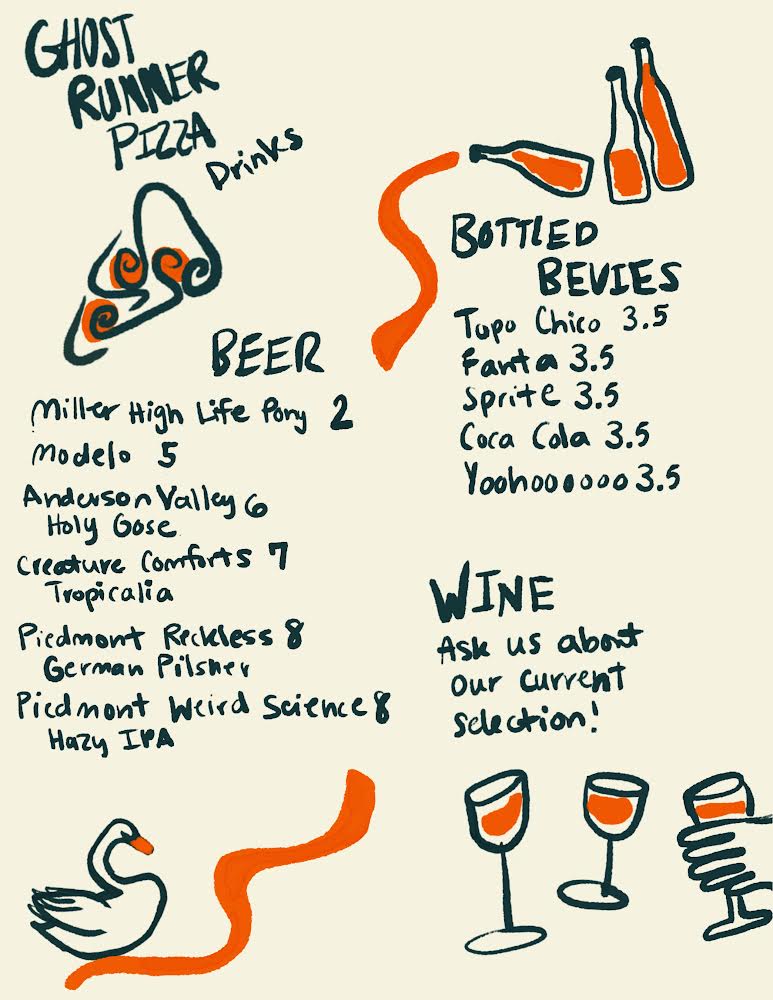 GHOST
RUNNER
PIZZA
Drinks
BEER
Miller High Life Pony 2
Modelo 5
Anderson Valley 6
Holy Gose
Creature Comforts 7
Tropicalia
Piedmont Reckless 8
German Pilsner
Piedmont Weird Science 8
Hazy IPA
BOTTLED
BEVIES
Topo Chico 3.5
Fanta 3.5
Sprite 3.5
Coca Cola 3.5
Yoohoooooo 3.5
WINE
Ask us about
our current
selection!